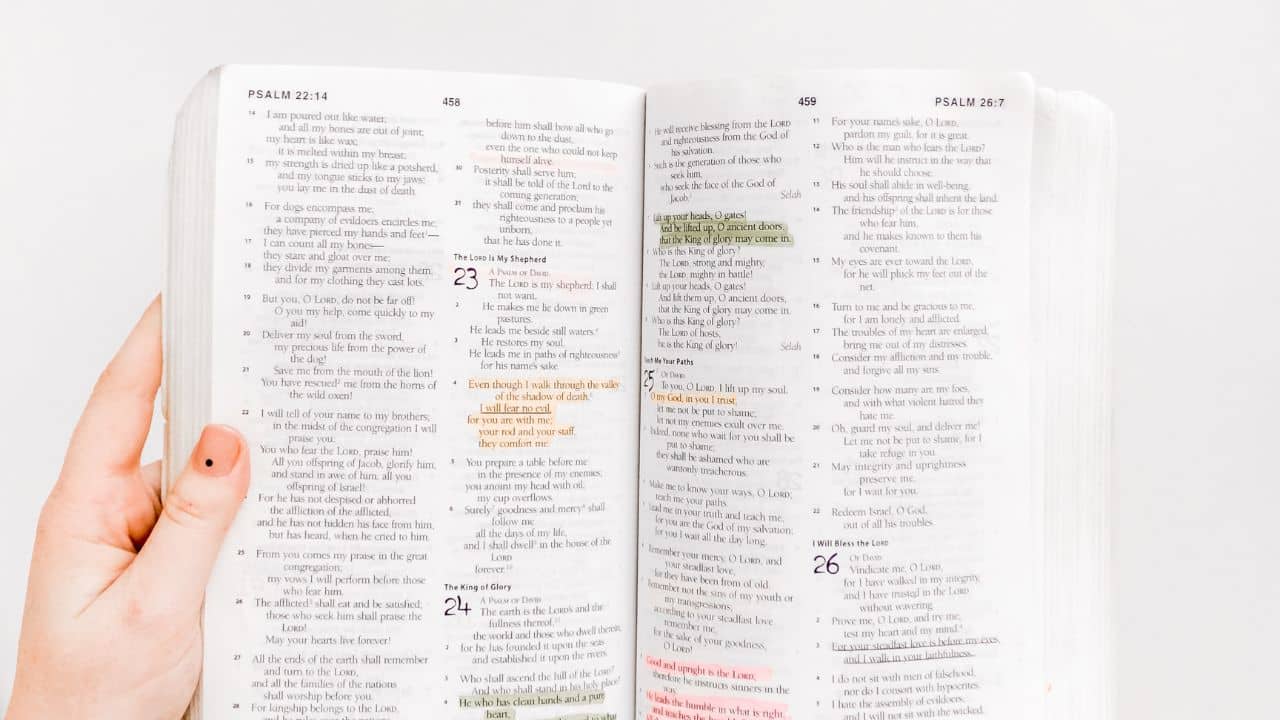 PSALM 22:14
458
14 I am poured out like water,
and all my bones are out of joint;
my heart is like wax;
it is melted within my breast;
15 my strength is dried up like a potsherd,
and my tongue sticks to my jaws;
you lay me in the dust of death.
16 For dogs encompass me;
a company of evildoers encircles me;
they have pierced my hands and feet—
17 I can count all my bones—
they stare and gloat over me;
18 they divide my garments among them,
and for my clothing they cast lots.
19 But you, O LORD, do not be far off!
O you my help, come quickly to my
aid!
20 Deliver my soul from the sword,
my precious life from the power of
the dog!
21 Save me from the mouth of the lion!
You have rescued² me from the horns of
the wild oxen!
22 I will tell of your name to my brothers;
in the midst of the congregation I will
praise you:
You who fear the LORD, praise him!
All you offspring of Jacob, glorify him,
and stand in awe of him, all you
offspring of Israel!
For he has not despised or abhorred
the affliction of the afflicted,
and he has not hidden his face from him,
but has heard, when he cried to him.
25 From you comes my praise in the great
congregation;
my vows I will perform before those
who fear him.
26 The afflicted³ shall eat and be satisfied;
those who seek him shall praise the
LORD!
May your hearts live forever!
27 All the ends of the earth shall remember
and turn to the LORD,
and all the families of the nations
shall worship before you.
28 For kingship belongs to the LORD,
and he rules over the nations.
before him shall bow all who go
down to the dust,
even the one who could not keep
himself alive.
30 Posterity shall serve him;
it shall be told of the Lord to the
coming generation;
31 they shall come and proclaim his
righteousness to a people yet
unborn,
that he has done it.
The LORD Is My Shepherd
23 A PSALM OF DAVID.
The LORD is my shepherd; I shall
not want.
2 He makes me lie down in green
pastures.
He leads me beside still waters.
3 He restores my soul.
He leads me in paths of righteousness
for his name's sake.
4 Even though I walk through the valley
of the shadow of death,
I will fear no evil,
for you are with me;
your rod and your staff,
they comfort me.
5 You prepare a table before me
in the presence of my enemies;
you anoint my head with oil;
my cup overflows.
6 Surely goodness and mercy shall
follow me
all the days of my life,
and I shall dwell in the house of the
LORD
forever.
The King of Glory
24 A PSALM OF DAVID.
The earth is the LORD's and the
fullness thereof,
the world and those who dwell therein,
2 for he has founded it upon the seas
and established it upon the rivers.
3 Who shall ascend the hill of the LORD?
And who shall stand in his holy place?
4 He who has clean hands and a pure
heart,
to what
459
PSALM 26:7
He will receive blessing from the LORD
and righteousness from the God of
his salvation.
Such is the generation of those who
seek him,
who seek the face of the God of
Jacob. Selah
Lift up your heads, O gates!
And be lifted up, O ancient doors,
that the King of glory may come in.
Who is this King of glory?
The LORD, strong and mighty,
the LORD, mighty in battle!
Lift up your heads, O gates!
And lift them up, O ancient doors,
that the King of glory may come in.
Who is this King of glory?
The LORD of hosts,
he is the King of glory! Selah
Teach Me Your Paths
25 OF DAVID.
To you, O LORD, I lift up my soul.
O my God, in you I trust;
let me not be put to shame;
let not my enemies exult over me.
Indeed, none who wait for you shall be
put to shame;
they shall be ashamed who are
wantonly treacherous.
Make me to know your ways, O LORD;
teach me your paths.
Lead me in your truth and teach me,
for you are the God of my salvation;
for you I wait all the day long.
Remember your mercy, O LORD, and
your steadfast love,
for they have been from of old.
Remember not the sins of my youth or
my transgressions;
according to your steadfast love
remember me,
for the sake of your goodness,
O LORD!
Good and upright is the LORD;
therefore he instructs sinners in the
way.
He leads the humble in what is right,
and teaches the humble
11 For your name's sake, O LORD,
pardon my guilt, for it is great.
12 Who is the man who fears the LORD?
Him will he instruct in the way that
he should choose.
13 His soul shall abide in well-being,
and his offspring shall inherit the land.
14 The friendship of the LORD is for those
who fear him,
and he makes known to them his
covenant.
15 My eyes are ever toward the LORD,
for he will pluck my feet out of the
net.
16 Turn to me and be gracious to me,
for I am lonely and afflicted.
17 The troubles of my heart are enlarged;
bring me out of my distresses.
18 Consider my affliction and my trouble,
and forgive all my sins.
19 Consider how many are my foes,
and with what violent hatred they
hate me.
20 Oh, guard my soul, and deliver me!
Let me not be put to shame, for I
take refuge in you.
21 May integrity and uprightness
preserve me,
for I wait for you.
22 Redeem Israel, O God,
out of all his troubles.
I Will Bless the LORD
26 OF DAVID.
Vindicate me, O LORD,
for I have walked in my integrity,
and I have trusted in the LORD
without wavering.
2 Prove me, O LORD, and try me;
test my heart and my mind.
3 For your steadfast love is before my eyes,
and I walk in your faithfulness.
4 I do not sit with men of falsehood,
nor do I consort with hypocrites.
5 I hate the assembly of evildoers,
and I will not sit with the wicked.